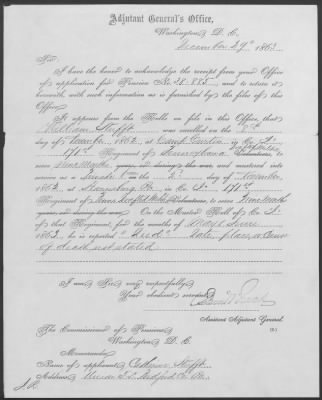 Adjutant General's Office,
Washington, D. C.
December 29th 1863
Sir:
I have the honor to acknowledge the receipt from your Office
of application for Pension No. 38.885 and to return it
herewith, with such information as is furnished by the files of this
Office.
It appears from the Rolls on file in this Office, that
William was enrolled on the
day of 1862 at Camp Curtin in Co.
171st Regiment of Pennsylvania Volunteers, to
serve Nine Months years, or during the war, and mustered into
service as a Private on the 2 day of November
1862, at Harrisburg Pa in Co. 171st
Regiment of Penn Volunteers, to serve Nine Months
years, or during the war. On the Muster Roll of Co.
of that Regiment, for the months of May & June
1863, he is reported "Died" Date, place, & Cause
of death not stated
I am, Sir, very respectfully,
Your obedient servant,
Assistant Adjutant General.
The Commissioner of Pensions,
Washington, D. C.
Memoranda:
Name of applicant, Catherine
Address, Union Bedford Co. Pa.